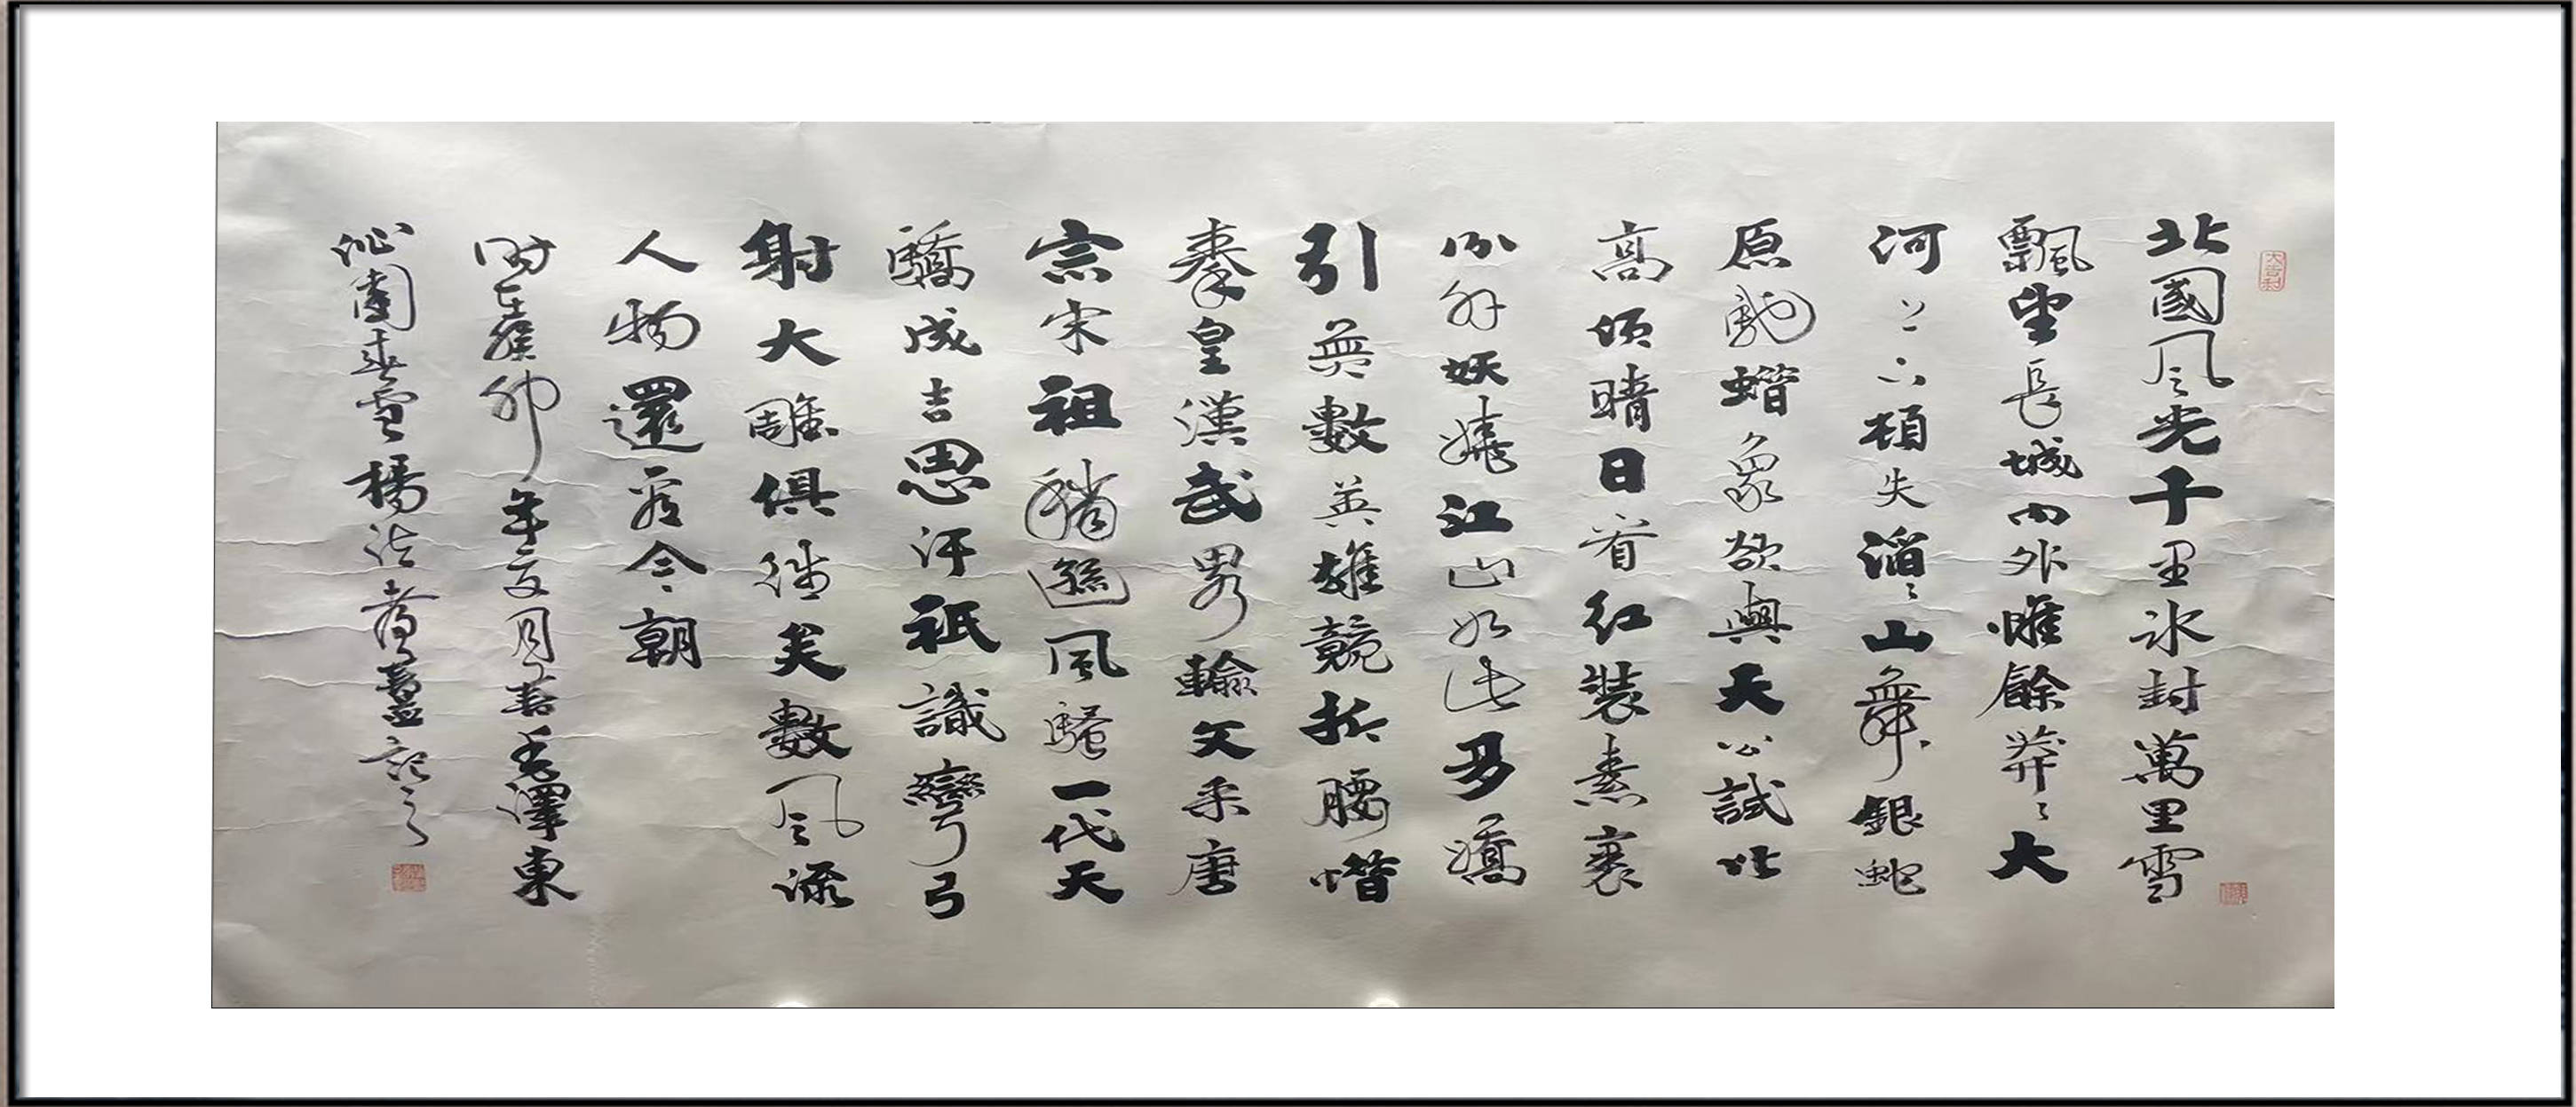 大吉利
北國風光千里冰封萬里雪
飄望長城內外惟餘莽〻大
河上下頓失滔〻山舞銀蛇
原馳蜡象欲與天公試比
高須晴日看紅裝素裹
分外妖嬈江山如此多嬌
引無數英雄競折腰惜
秦皇漢武略輸文采唐
宗宋祖稍遜風騷一代天
驕成吉思汗祇識彎弓
射大雕俱往矣數風流
人物還看今朝
時在癸卯年夏月書毛澤東
沁園春雪楊法 記之